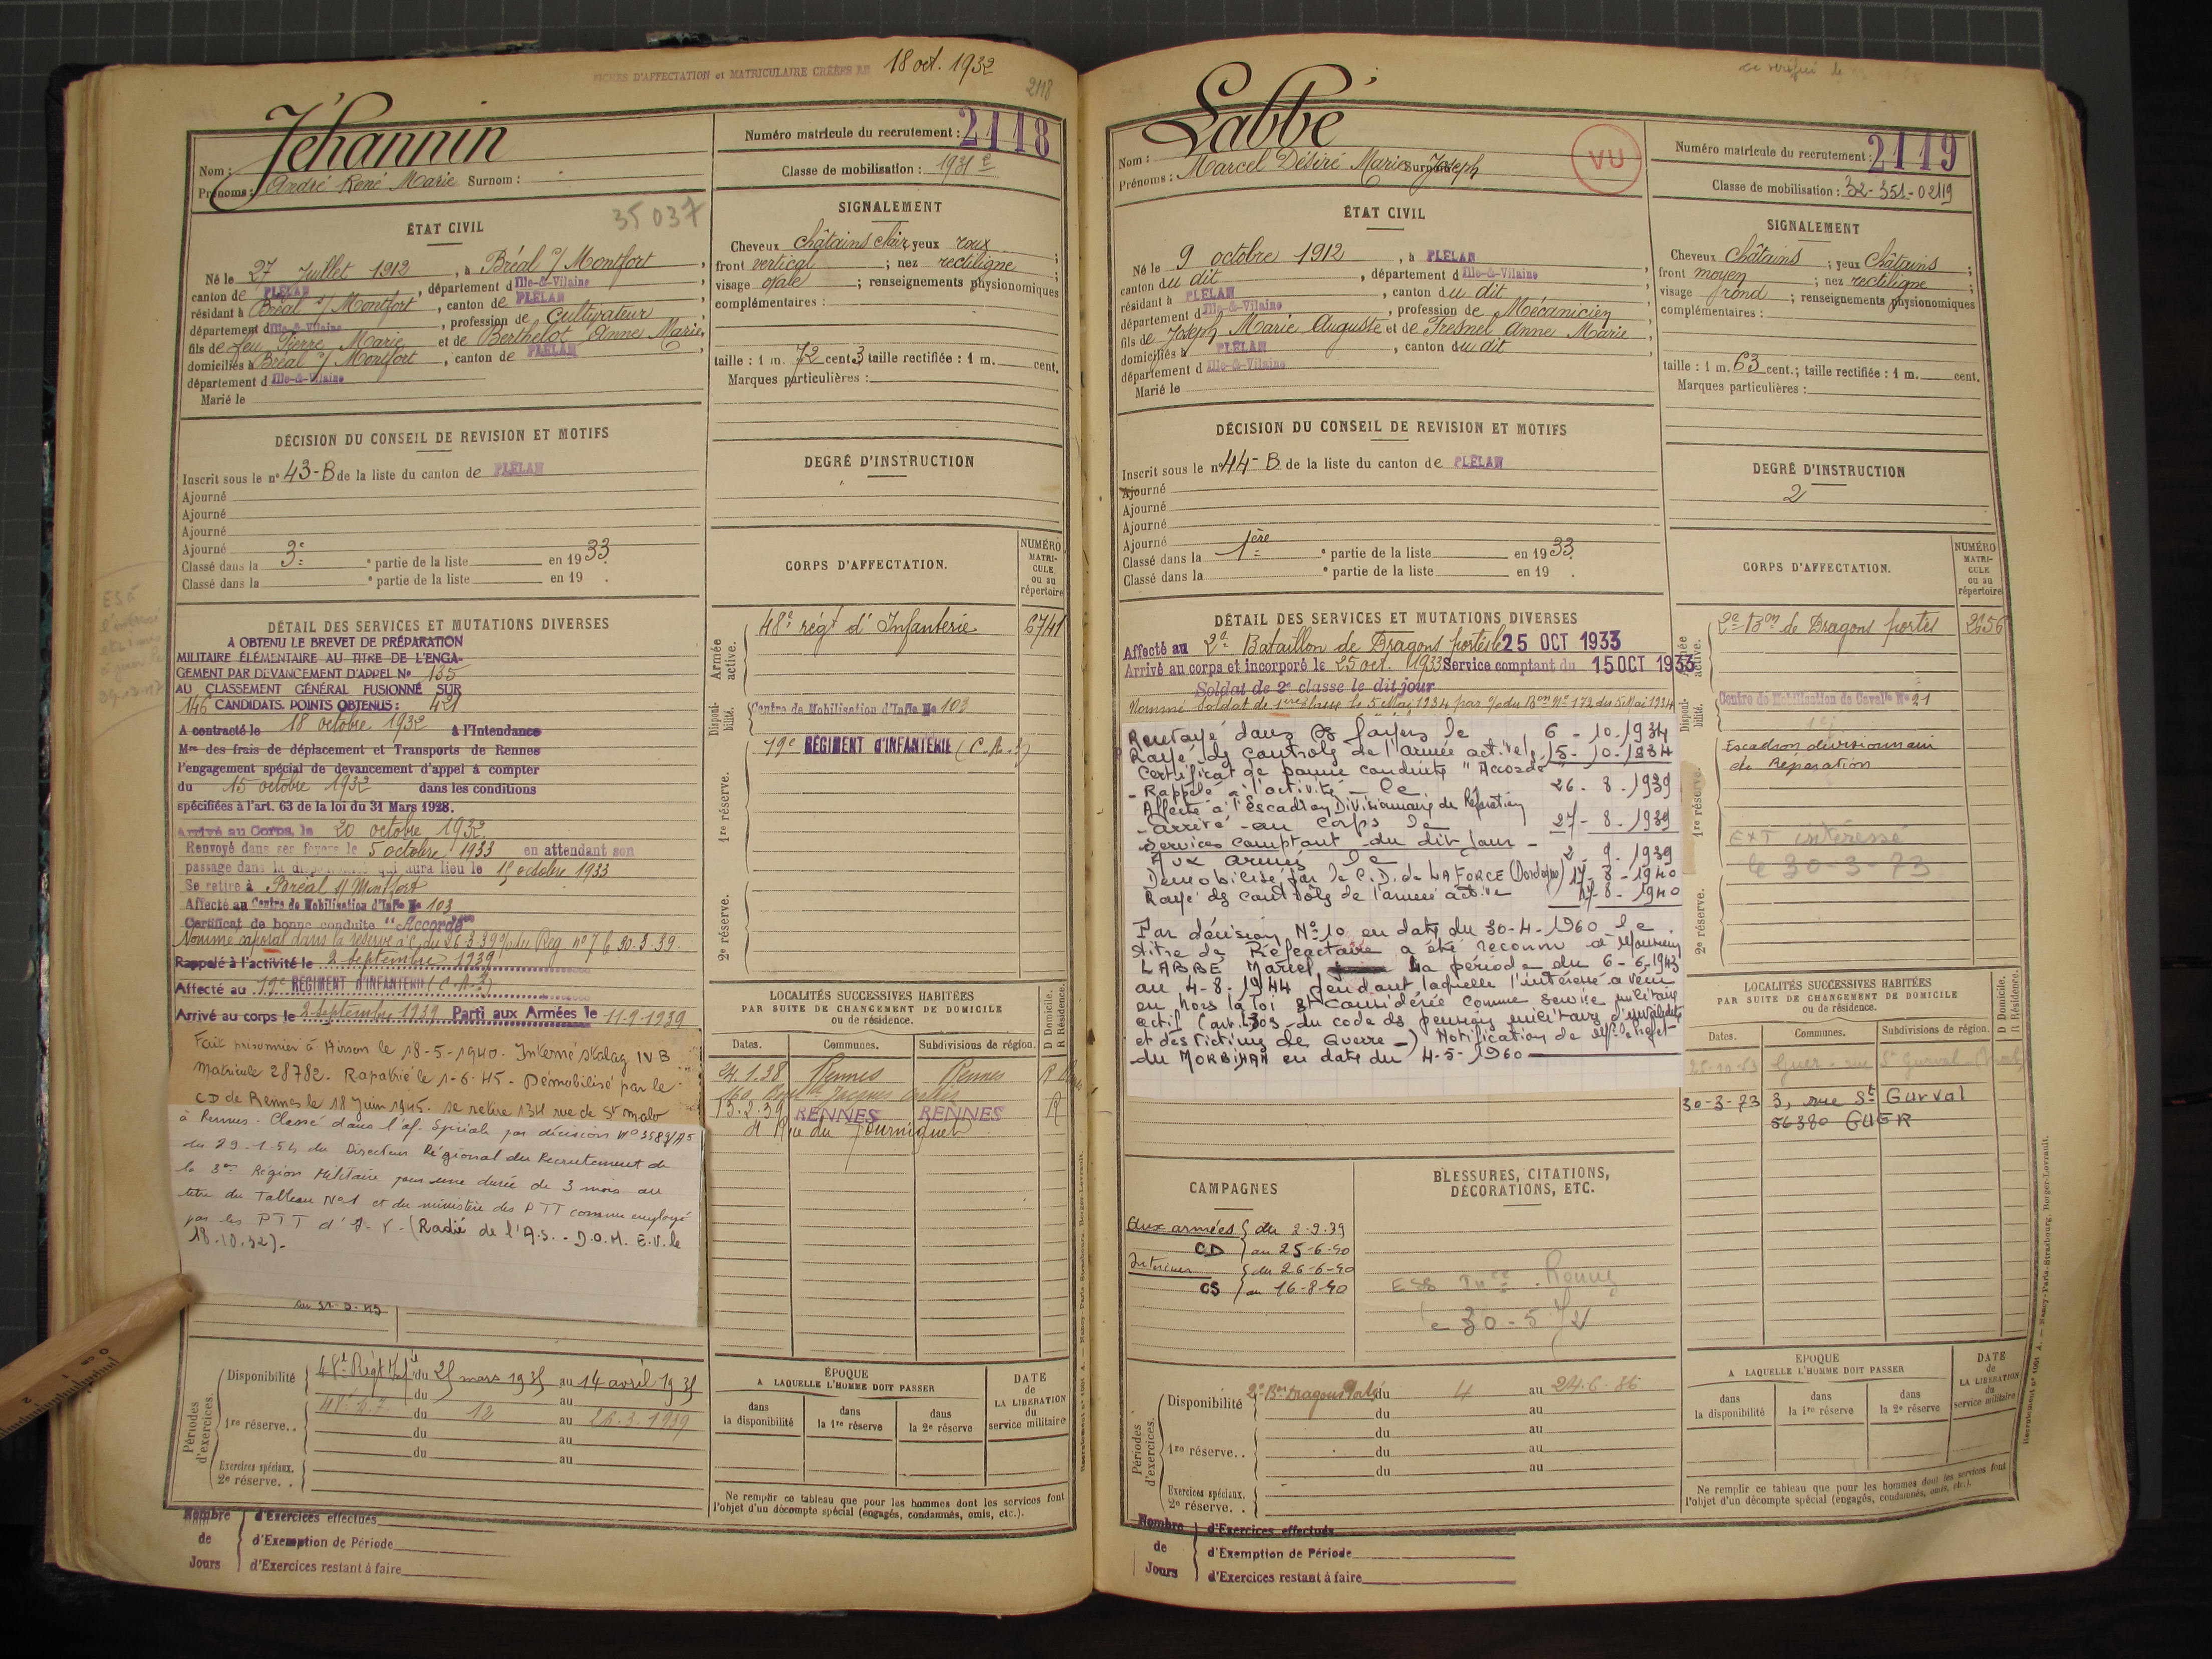 FICHES D'AFFECTATION et MATRICULAIRE CRÉÉES LE 18 oct. 1932
2118
Jéhannin
Nom :
Prénoms : André René Marie Surnom :
Numéro matricule du recrutement : 2118
Classe de mobilisation : 1931 e
35037
ÉTAT CIVIL
Né le 27 Juillet 1912, à Bréal s/ Montfort,
canton de PLÉLAN, département d Ille-&-Vilaine,
résidant à Bréal s/ Montfort, canton de PLÉLAN,
département d Ille-&-Vilaine, profession de Cultivateur,
fils de feu Pierre Marie et de Berthelot Anne Marie,
domiciliés à Bréal s/ Montfort, canton de PLÉLAN,
département d Ille-&-Vilaine
Marié le
SIGNALEMENT
Cheveux châtains clair yeux roux ;
front vertical ; nez rectiligne ;
visage ovale ; renseignements physionomiques
complémentaires :
taille : 1 m. 72 cent. 3 taille rectifiée : 1 m. cent.
Marques particulières :
DÉCISION DU CONSEIL DE REVISION ET MOTIFS
Inscrit sous le n° 43-B de la liste du canton de PLÉLAN
Ajourné
Ajourné
Ajourné
Ajourné
Classé dans la 3e ° partie de la liste en 1933.
Classé dans la ° partie de la liste en 19 .
DEGRÉ D'INSTRUCTION
CORPS D'AFFECTATION.
NUMÉRO MATRI-CULE ou au répertoire
Armée active.
48e régt d'Infanterie 6741
Disponi-bilité.
Centre de Mobilisation d'Infie No 103
19e RÉGIMENT d'INFANTERIE (C.A.3)
1re réserve.
2e réserve.
DÉTAIL DES SERVICES ET MUTATIONS DIVERSES
A OBTENU LE BREVET DE PRÉPARATION
MILITAIRE ÉLÉMENTAIRE AU TITRE DE L'ENGA-
GEMENT PAR DEVANCEMENT D'APPEL No 135
AU CLASSEMENT GÉNÉRAL FUSIONNÉ SUR
146 CANDIDATS. POINTS OBTENUS : 421
A contracté le 18 octobre 1932 à l'Intendance
Mre des frais de déplacement et Transports de Rennes
l'engagement spécial de devancement d'appel à compter
du 15 octobre 1932 dans les conditions
spécifiées à l'art. 63 de la loi du 31 Mars 1928.
Arrivé au Corps, le 20 octobre 1932
Renvoyé dans ses foyers le 5 octobre 1933 en attendant son
passage dans la disponibilité qui aura lieu le 15 octobre 1933
Se retire à Bréal s/ Montfort
Affecté au Centre de Mobilisation d'Infie No 103
Certificat de bonne conduite "Accordé"
Nommé caporal dans la réserve à c. du 26.3.39 du Rég. no 76 30.3.39.
Rappelé à l'activité le 2 Septembre 1939
Affecté au 19e RÉGIMENT D'INFANTERIE (C.A.3)
Arrivé au corps le 2 septembre 1939 Parti aux Armées le 11.9.1939
Fait prisonnier à Hirson le 18-5-1940. Interné stalag IV B
Matricule 28782. Rapatrié le 1-6-45 - Démobilisé par le
CD de Rennes le 18 juin 1945. se retire 134 rue de St malo
à Rennes. Classé dans l'af. Spéciale par décision
du 29-1-52 du Directeur Régional du Recrutement de
la 3me Région Militaire pour une durée de 3 mois au
titre du Tableau No1 et du ministère des PTT comme employé
par les PTT d'I-V - (Radié de l'A.S. - D.O.M. E.V. le
18.10.52).
LOCALITÉS SUCCESSIVES HABITÉES
PAR SUITE DE CHANGEMENT DE DOMICILE
ou de résidence.
Dates. Communes. Subdivisions de région. D Domicile. R Résidence.
24.1.38 Rennes Rennes R
Jacques Cartier
13.2.39 RENNES RENNES R
Rue du Tourniquet
Disponibilité 48e Régt Infie du 25 mars 1935 au 14 avril 1935
du au
1re réserve.. du 12 au 26.3.1939
du au
du au
Périodes d'exercices.
Exercices spéciaux.
2e réserve. .
ÉPOQUE
A LAQUELLE L'HOMME DOIT PASSER
dans la disponibilité
dans la 1re réserve
dans la 2e réserve
DATE de LA LIBÉRATION du service militaire
Ne remplir ce tableau que pour les hommes dont les services font
l'objet d'un décompte spécial (engagés, condamnés, omis, etc.).
Nombre de Jours
d'Exercices effectués
d'Exemption de Période
d'Exercices restant à faire
Labbé
Nom :
Prénoms : Marcel Désiré Marie Joseph Surnom
VU
Numéro matricule du recrutement : 2119
Classe de mobilisation : 32-351-02119
ÉTAT CIVIL
Né le 9 octobre 1912, à PLÉLAN,
canton du dit, département d Ille-&-Vilaine,
résidant à PLÉLAN, canton du dit,
département d Ille-&-Vilaine, profession de Mécanicien,
fils de Joseph Marie Auguste et de Fresnel Anne Marie,
domiciliés à PLÉLAN, canton du dit,
département d Ille-&-Vilaine
Marié le
SIGNALEMENT
Cheveux Châtains ; yeux Châtains ;
front moyen ; nez rectiligne ;
visage rond ; renseignements physionomiques
complémentaires :
taille : 1 m. 63 cent.; taille rectifiée : 1 m. cent.
Marques particulières :
DÉCISION DU CONSEIL DE REVISION ET MOTIFS
Inscrit sous le n° 44-B de la liste du canton de PLÉLAN
Ajourné
Ajourné
Ajourné
Ajourné
Classé dans la 1ère ° partie de la liste en 1933.
Classé dans la ° partie de la liste en 19 .
DEGRÉ D'INSTRUCTION
2
CORPS D'AFFECTATION.
NUMÉRO MATRI-CULE ou au répertoire
Armée active.
2e Bon de Dragons portés 2656
Disponi-bilité.
Centre de Mobilisation de Cavalie No 21
Escadron divisionnaire
de Réparation
1re réserve.
EXT intéressé
le 30-3-73
2e réserve.
DÉTAIL DES SERVICES ET MUTATIONS DIVERSES
Affecté au 2e Bataillon de Dragons portés le 25 OCT 1933
Arrivé au corps et incorporé le 25 oct. 1933 Service comptant du 15 OCT 1933
Soldat de 2e classe le dit jour
Nommé Soldat de 1ère classe le 5 Mai 1934 par o/ du Bon No 172 du 5 Mai 1934
Renvoyé dans ses foyers le 6-10-1934
Rayé des controls de l'armée active le 15-10-1934
Certificat de bonne conduite "Accordé"
- Rappelé à l'activité - le 26-8-1939
Affecté à l'Escadron Divisionnaire de Réparation
- arrivé - au corps le 27-8-1939
Services comptant du dit jour -
Aux armées le 2-9-1939
Démobilisé par le C.D. de LA FORCE (Dordogne) 17-8-1940
Rayé des contrôls de l'armée active 17-8-1940
Par décision No 10 en date du 30-4-1960 le
titre de Réfractaire a été reconnu à Monsieur
LABBE Marcel la période du 6-6-1943
au 4-8-1944 pendant laquelle l'intéressé a vécu
en hors la loi est considérée comme service militaire
actif du code des pensions militaires d'invalidité
et des Victimes de Guerre -) Notification de
du MORBIHAN en date du 4-5-1960
LOCALITÉS SUCCESSIVES HABITÉES
PAR SUITE DE CHANGEMENT DE DOMICILE
ou de résidence.
Dates. Communes. Subdivisions de région. D Domicile. R Résidence.
Guer - rue St Gurval
30-3-73 3, rue St Gurval
56380 GUER
CAMPAGNES
Aux armées { du 2-9-39
CD } au 25-6-40
Intérieur { du 26-6-40
CS } au 16-8-40
BLESSURES, CITATIONS, DÉCORATIONS, ETC.
Périodes d'exercices.
Disponibilité 2e Bon Dragons Portés du 4 au 24.6.36
du au
du au
1re réserve. . du au
du au
Exercices spéciaux.
2e réserve. .
ÉPOQUE
A LAQUELLE L'HOMME DOIT PASSER
dans la disponibilité
dans la 1re réserve
dans la 2e réserve
DATE de LA LIBÉRATION du service militaire
Ne remplir ce tableau que pour les hommes dont les services font
l'objet d'un décompte spécial (engagés, condamnés, omis, etc.).
Nombre de Jours
d'Exercices effectués
d'Exemption de Période
d'Exercices restant à faire